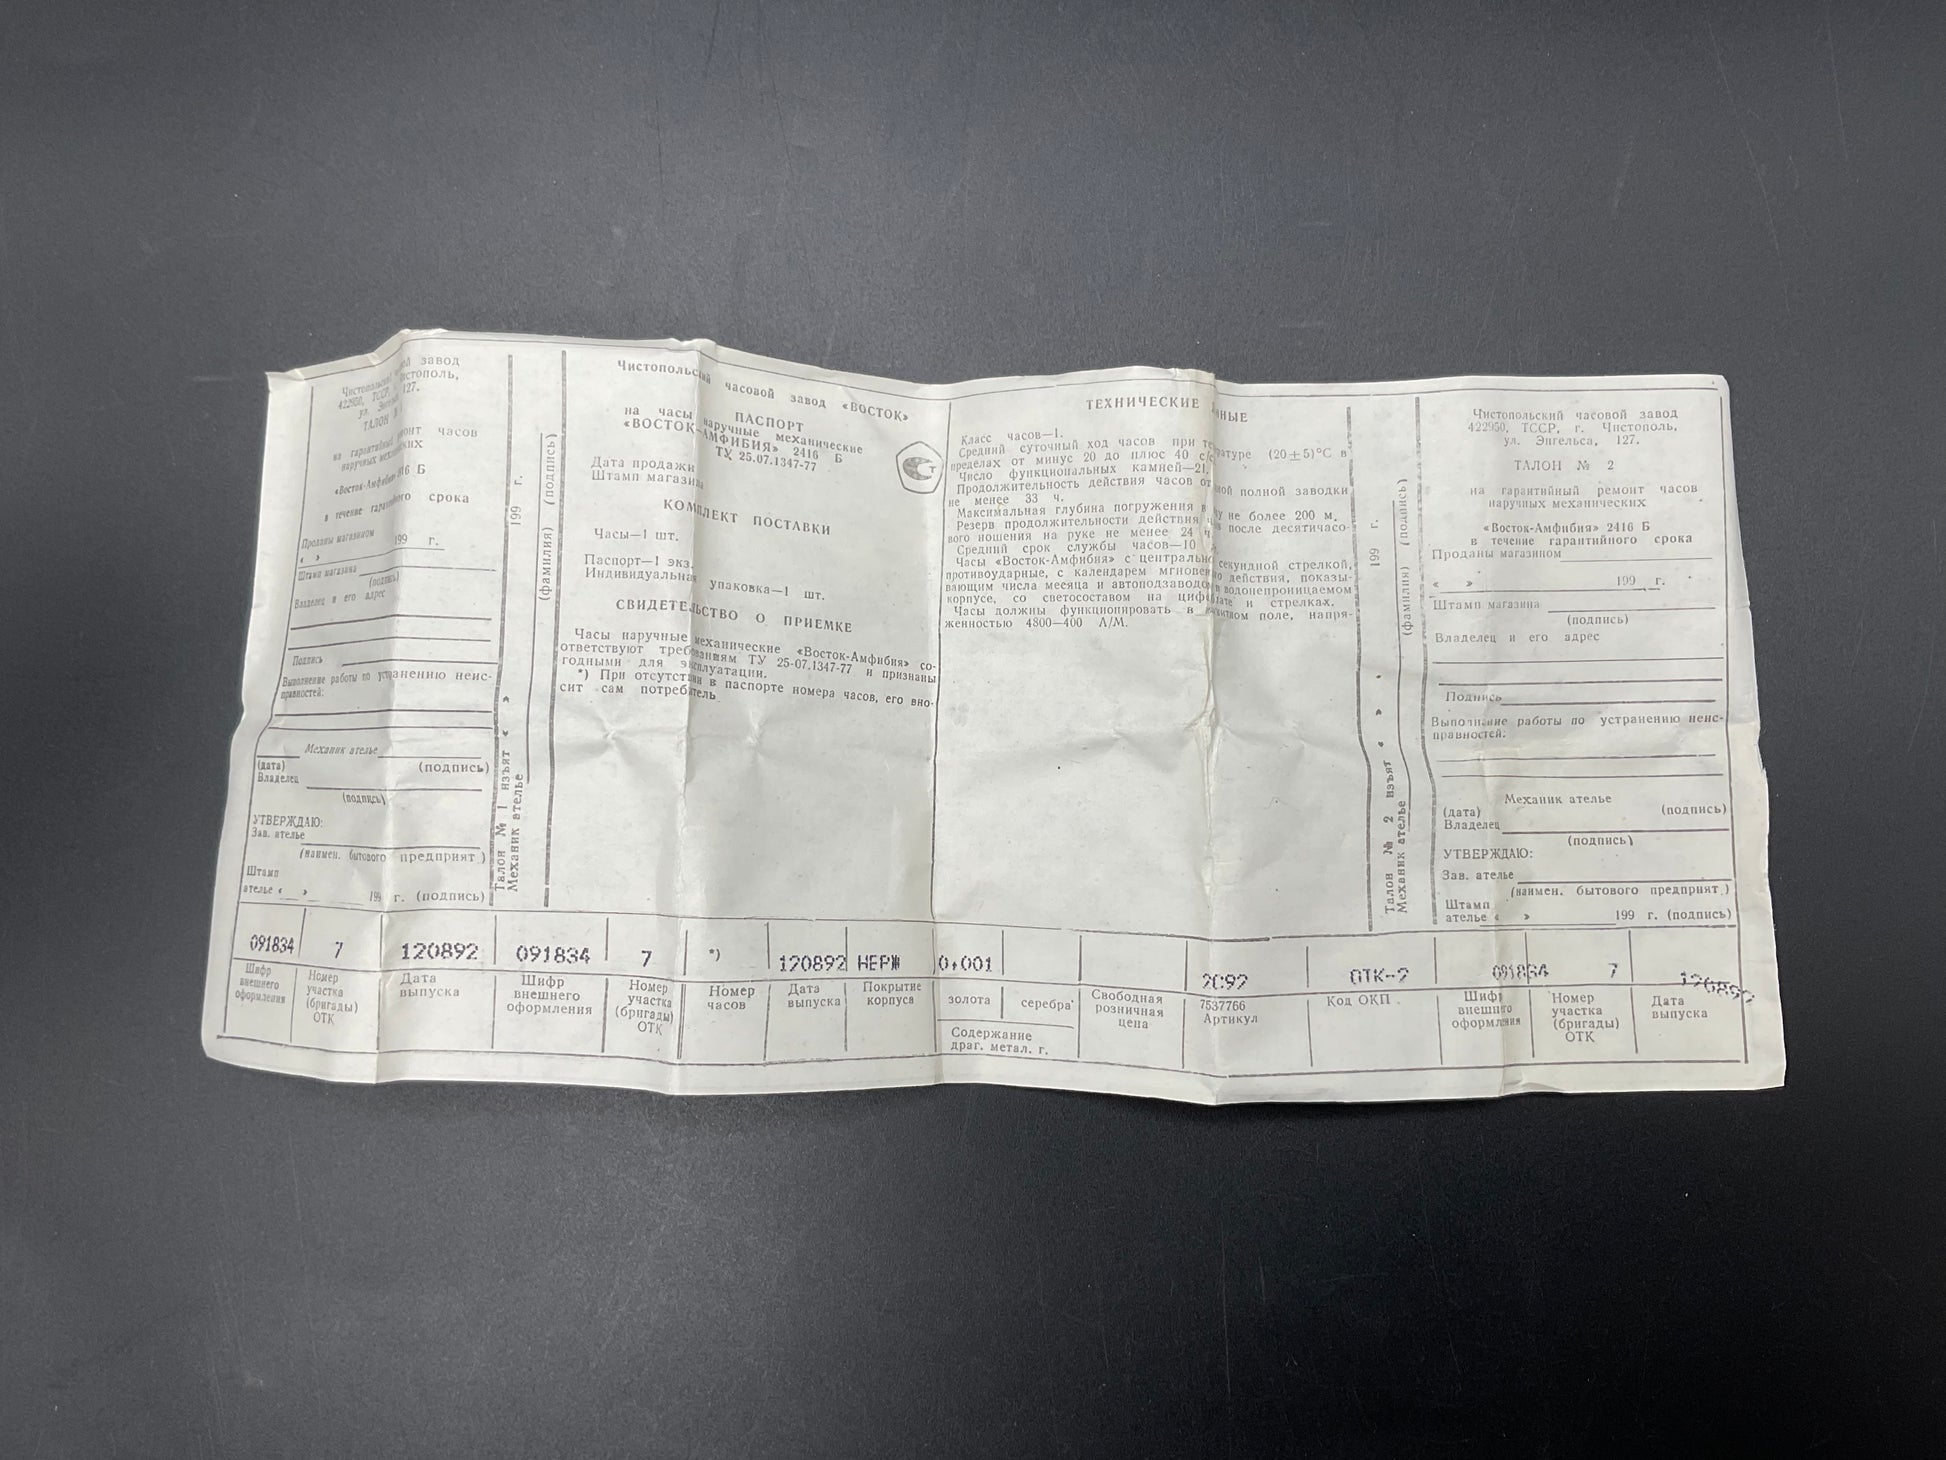 Чистопольский часовой завод
422950, ТССР, г. Чистополь,
ул. Энгельса, 127.
ТАЛОН №
на гарантийный ремонт часов
наручных механических
«Восток-Амфибия» 2416 Б
в течение гарантийного срока
Проданы магазином
« » 199 г.
Штамп магазина
(подпись)
Владелец и его адрес
Подпись
Выполнение работы по устранению неис-
правностей:
Механик ателье
(дата) (подпись)
Владелец
(подпись)
УТВЕРЖДАЮ:
Зав. ателье
(наимен. бытового предприят)
Штамп
ателье « » 199 г. (подпись)
Талон № 1 изъят « » 199 г.
Механик ателье (фамилия) (подпись)
Чистопольский часовой завод «ВОСТОК»
ПАСПОРТ
на часы наручные механические
«ВОСТОК-АМФИБИЯ» 2416 Б
ТУ 25.07.1347-77
Дата продажи
Штамп магазина
КОМПЛЕКТ ПОСТАВКИ
Часы—1 шт.
Паспорт—1 экз.
Индивидуальная упаковка—1 шт.
СВИДЕТЕЛЬСТВО О ПРИЕМКЕ
Часы наручные механические «Восток-Амфибия» со-
ответствуют требованиям ТУ 25-07.1347-77 и признаны
годными для эксплуатации.
*) При отсутствии в паспорте номера часов, его вно-
сит сам потребитель
ТЕХНИЧЕСКИЕ ДАННЫЕ
Класс часов—1.
Средний суточный ход часов при температуре (20±5)°С в
пределах от минус 20 до плюс 40 с/с
Число функциональных камней—21.
Продолжительность действия часов от одной полной заводки
не менее 33 ч.
Максимальная глубина погружения в воду не более 200 м.
Резерв продолжительности действия часов после десятичасо-
вого ношения на руке не менее 24 ч.
Средний срок службы часов—10
Часы «Восток-Амфибия» с центральной секундной стрелкой,
противоударные, с календарем мгновенного действия, показы-
вающим числа месяца и автоподзаводом в водонепроницаемом
корпусе, со светосоставом на циферблате и стрелках.
Часы должны функционировать в магнитном поле, напря-
женностью 4800—400 А/М.
Талон № 2 изъят « » 199 г.
Механик ателье (фамилия) (подпись)
Чистопольский часовой завод
422950, ТССР, г. Чистополь,
ул. Энгельса, 127.
ТАЛОН № 2
на гарантийный ремонт часов
наручных механических
«Восток-Амфибия» 2416 Б
в течение гарантийного срока
Проданы магазином
« » 199 г.
Штамп магазина
(подпись)
Владелец и его адрес
Подпись
Выполнение работы по устранению неис-
правностей:
Механик ателье
(дата) (подпись)
Владелец
(подпись)
УТВЕРЖДАЮ:
Зав. ателье
(наимен. бытового предприят.)
Штамп
ателье « » 199 г. (подпись)
091834 7 120892 091834 7 *) 120892 НЕРЖ 0,001 2С92 ОТК-2 091834 7 120892
Шифр внешнего оформления
Номер участка (бригады) ОТК
Дата выпуска
Шифр внешнего оформления
Номер участка (бригады) ОТК
Номер часов
Дата выпуска
Покрытие корпуса
золота серебра
Содержание
драг. метал. г.
Свободная розничная цена
7537766
Артикул
Код ОКП.
Шифр внешнего оформления
Номер участка (бригады) ОТК
Дата выпуска